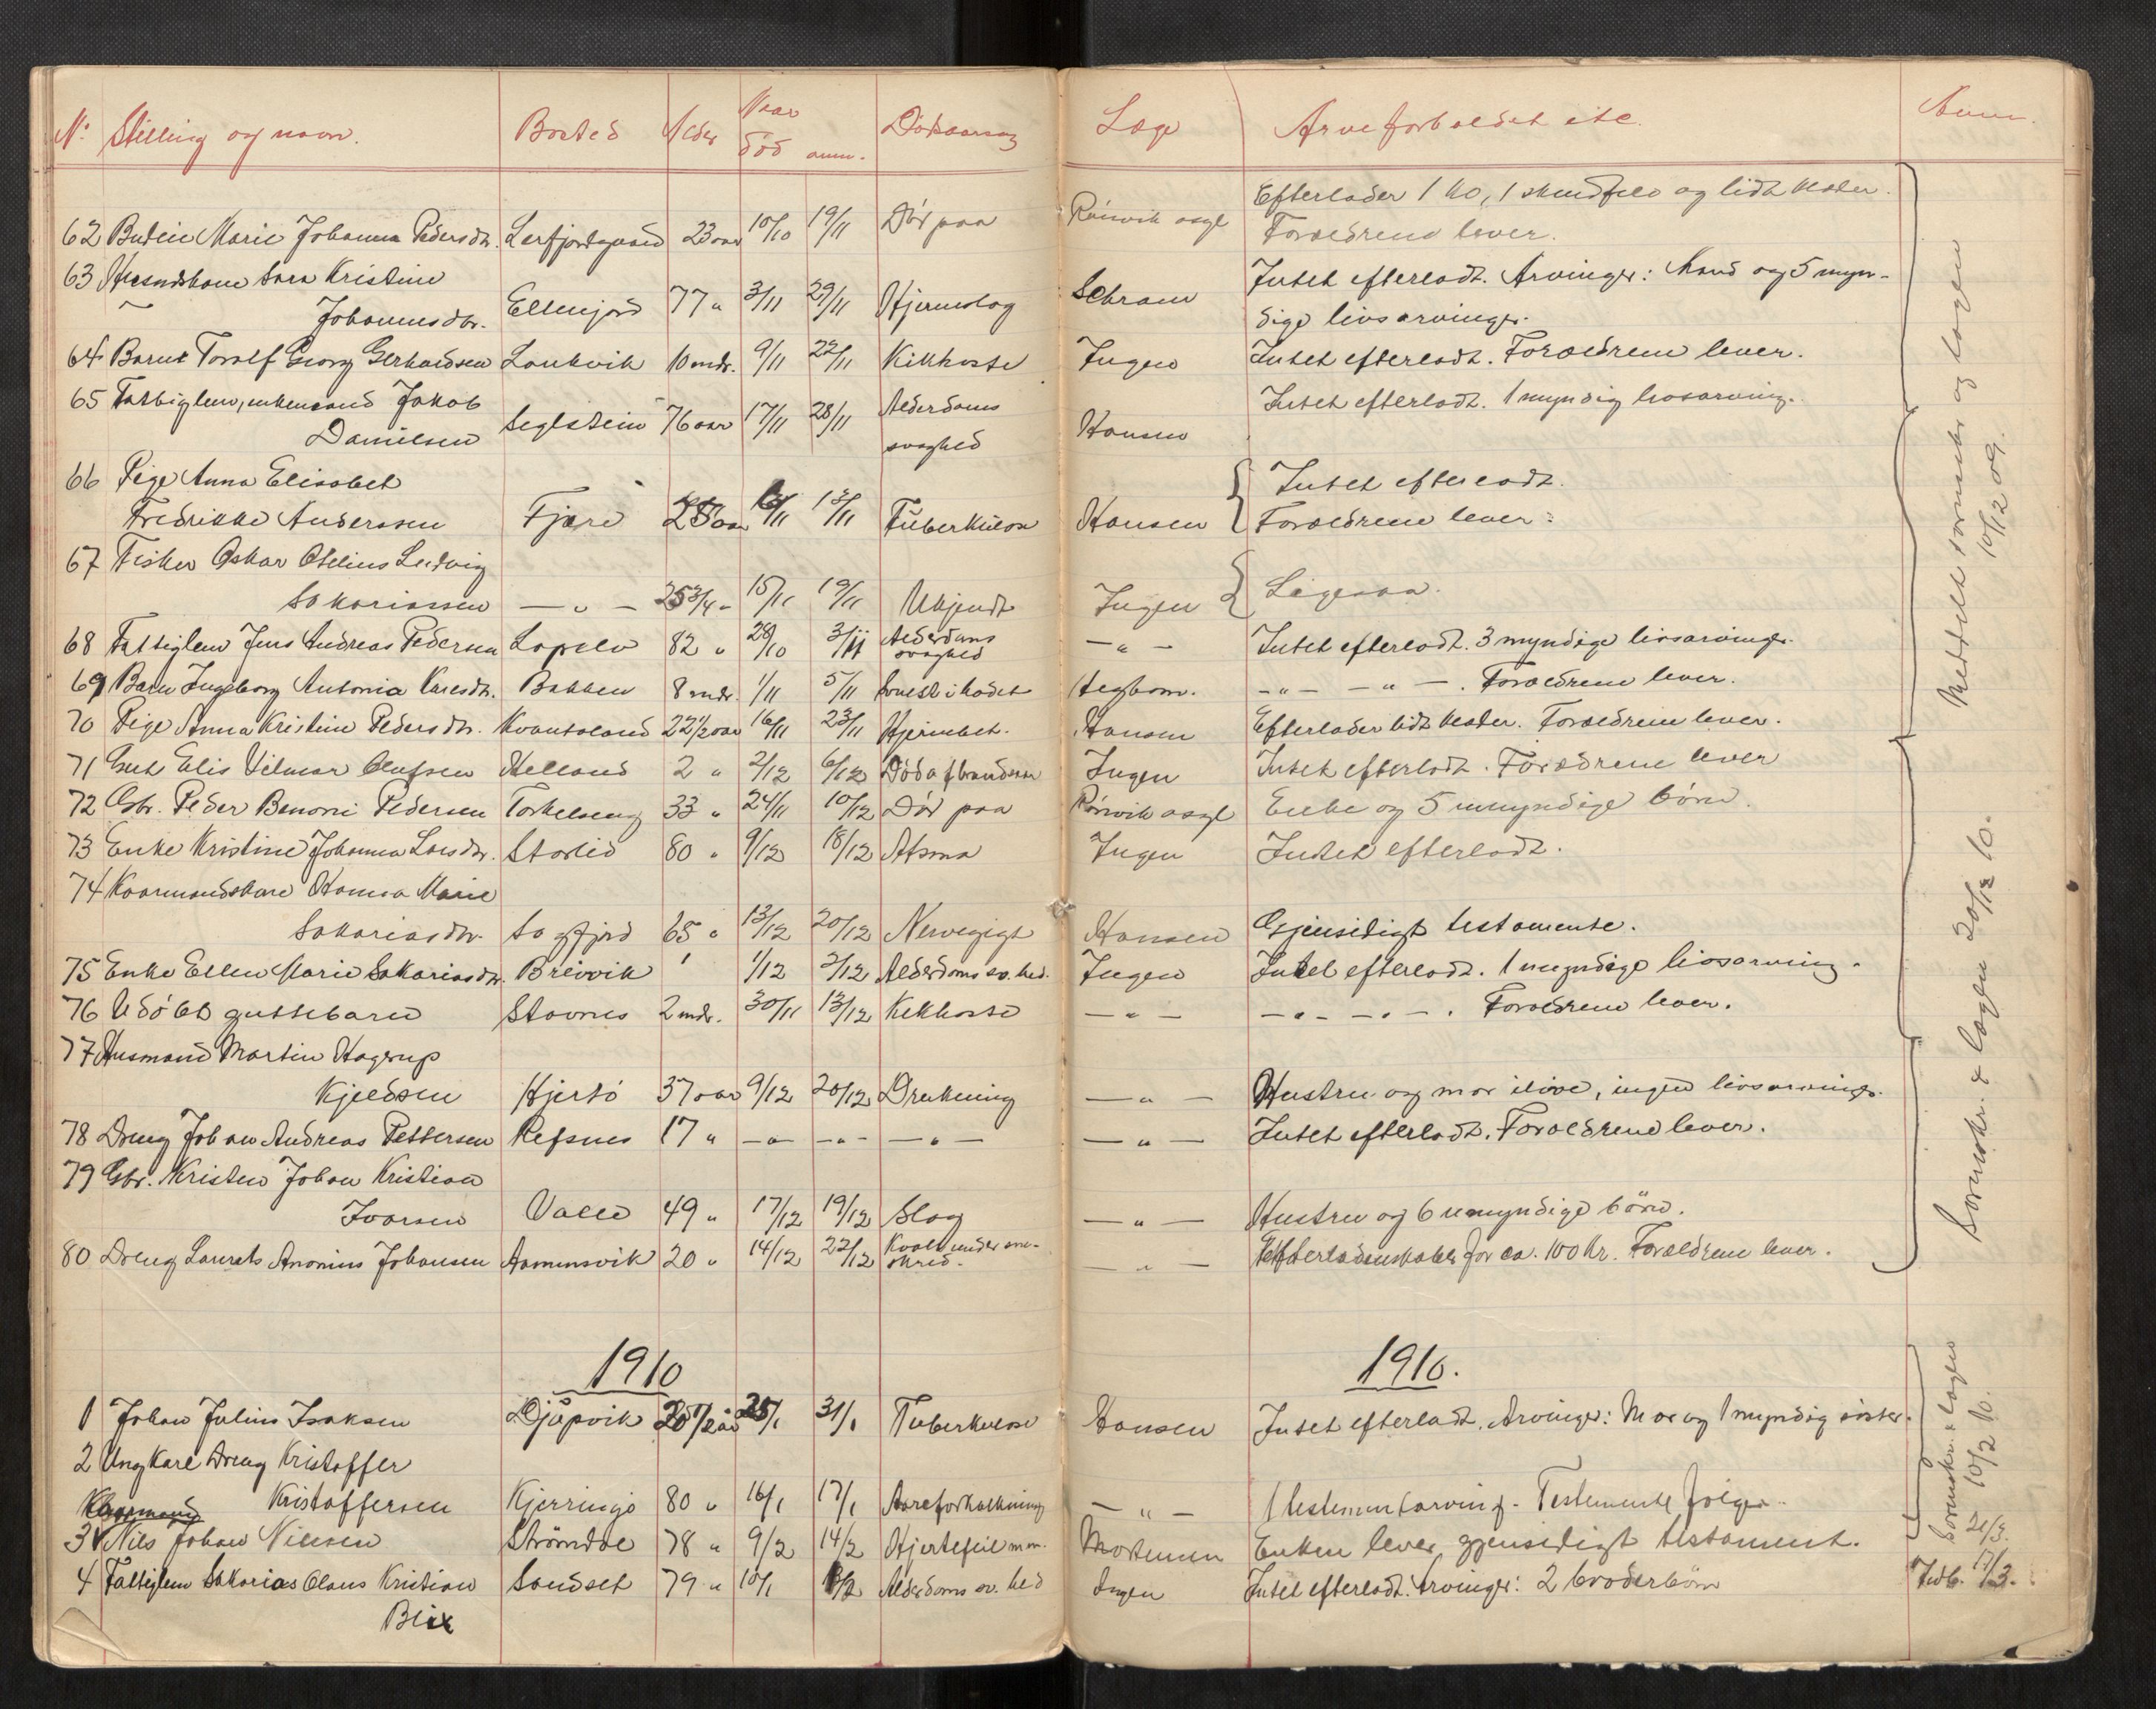 No Stilling og navn. Bosted Alder Naar død anm. Dødsaarsag Læge Arveforholdet etc. Anm.
Efterlader 1 ko, 1 skindfeld og lidt klæder.
62 Budeie Marie Johanna Pedersdtr. Leirfjordgaard 23 aar 10/10 19/11 Død paa Rönvik asyl Forældrene lever.
63 Husmdskone Sara Kristine Intet efterladt. Arvinger: Mand og 5 myn-
Johannesdtr. Ellenjord 77 " 3/11 29/11 Hjerneslag Schram dige livsarvinger.
64 Barnet Toralf Georg Gerhardsen Laukvik 10 mdr. 9/11 22/11 Kikhoste Ingen Intet efterladt. Forældrene lever.
65 Fattiglem, enkemand Jakob Intet efterladt. 1 myndig livsarving.
Danielsen Seglstein 76 aar 17/11 28/11 Alderdoms svaghed Hansen
66 Pige Anna Elisabet Intet efterladt.
Fredrikke Anderssen Fjære 25 aar /11 13/11 Tuberkulose Hansen Forældrene lever.
67 Fisker Oskar Otelius Ludvig
Sakariassen — " — 25 3/4 " 15/11 19/11 Ukjendt Ingen Ligesaa.
68 Fattiglem Jens Andreas Pedersen Løpelv 82 " 28/10 3/11 Alderdoms svaghed — " — Intet efterladt. 3 myndige livsarvinger.
69 Barn Ingeborg Antonia Karesdtr. Bakken 8 mdr. 1/11 5/11 Hegbom. — " — — " —. Forældrene lever.
70 Pige Anna Kristine Pedersdtr. Kvantoland 22 1/2 aar 16/11 23/11 Hjernebet. Hansen Efterlader lidt klæder. Forældrene lever.
71 Gut Elis Vilmar Olufsen Helland 2 " 2/12 6/12 Død af brandsaar Ingen Intet efterladt. Forældrene lever
72 Gbr. Peder Benoni Pedersen Torkelseng 33 " 24/11 10/12 Død paa Rönvik asyl Enke og 5 umyndige börn.
73 Enke Kristine Johanna Larsdtr. Storlid 80 " 9/12 18/12 Astma Ingen Intet efterladt.
74 Kaarmandskone Hansa Marie
Sakariasdtr. Sagfjord 65 " 13/12 20/12 Nervegigt Hansen Gjensidigt testamente.
75 Enke Ellen Marie Sakariasdtr. Breivik 1/12 2/12 Alderdoms sv. hed. Ingen Intet efterladt. 1 myndige livsarving.
76 Udöbt guttebarn Stavnes 2 mdr. 30/11 13/12 Kikhoste — " — — " — — " —. Forældrene lever.
77 Husmand Martin Hagerup
Kjeldsen Hjertö 37 aar 9/12 20/12 Drukning — " — Hustru og mor ilive, ingen livsarvinger.
78 Dreng Johan Andreas Pettersen Refsnes 17 " — " — — " — — " — — " — Intet efterladt. Forældrene lever.
79 Gbr. Kristen Johan Kristian
Ivarsen Valle 49 " 17/12 19/12 Slag — " — Hustru og 6 umyndige börn.
80 Dreng Laurats Anonius Johansen Aamnesvik 20 " 14/12 22/12 Kvalt under sne-skred. — " — Efterladenskaber for ca. 100 kr. Forældrene lever.
Meddelt sorenskr og lagen 10/12 09.
Sorenskr. & lagen 20/12 10.
1910 1910.
1 Johan Julius Isaksen Djupvik 20 1/2 aar 25/1 31/1 Tuberkulose Hansen Intet efterladt. Arvinger: Mor og 1 myndig söster.
2 Ungkare Dreng Kristoffer
Kristoffersen Kjerringö 80 " 16/1 17/1 Aareforkalkning — " — 1 testamentarving. Testamente fölger.
Kaarmand
3 Nils Johan Nilsen Strömdal 78 " 9/2 14/2 Hjertefeil m.m. Mortensen Enken lever, gjensidigt testament.
4 Fattiglem Sakarias Claus Kristian Sandset 79 " 10/1 /2 Alderdoms sv. hed Ingen Intet efterladt. Arvinger: 2 broderbörn
Blix
Sorenskr. & lagen 10/2 10.
21/3.
Indb. 17/3.